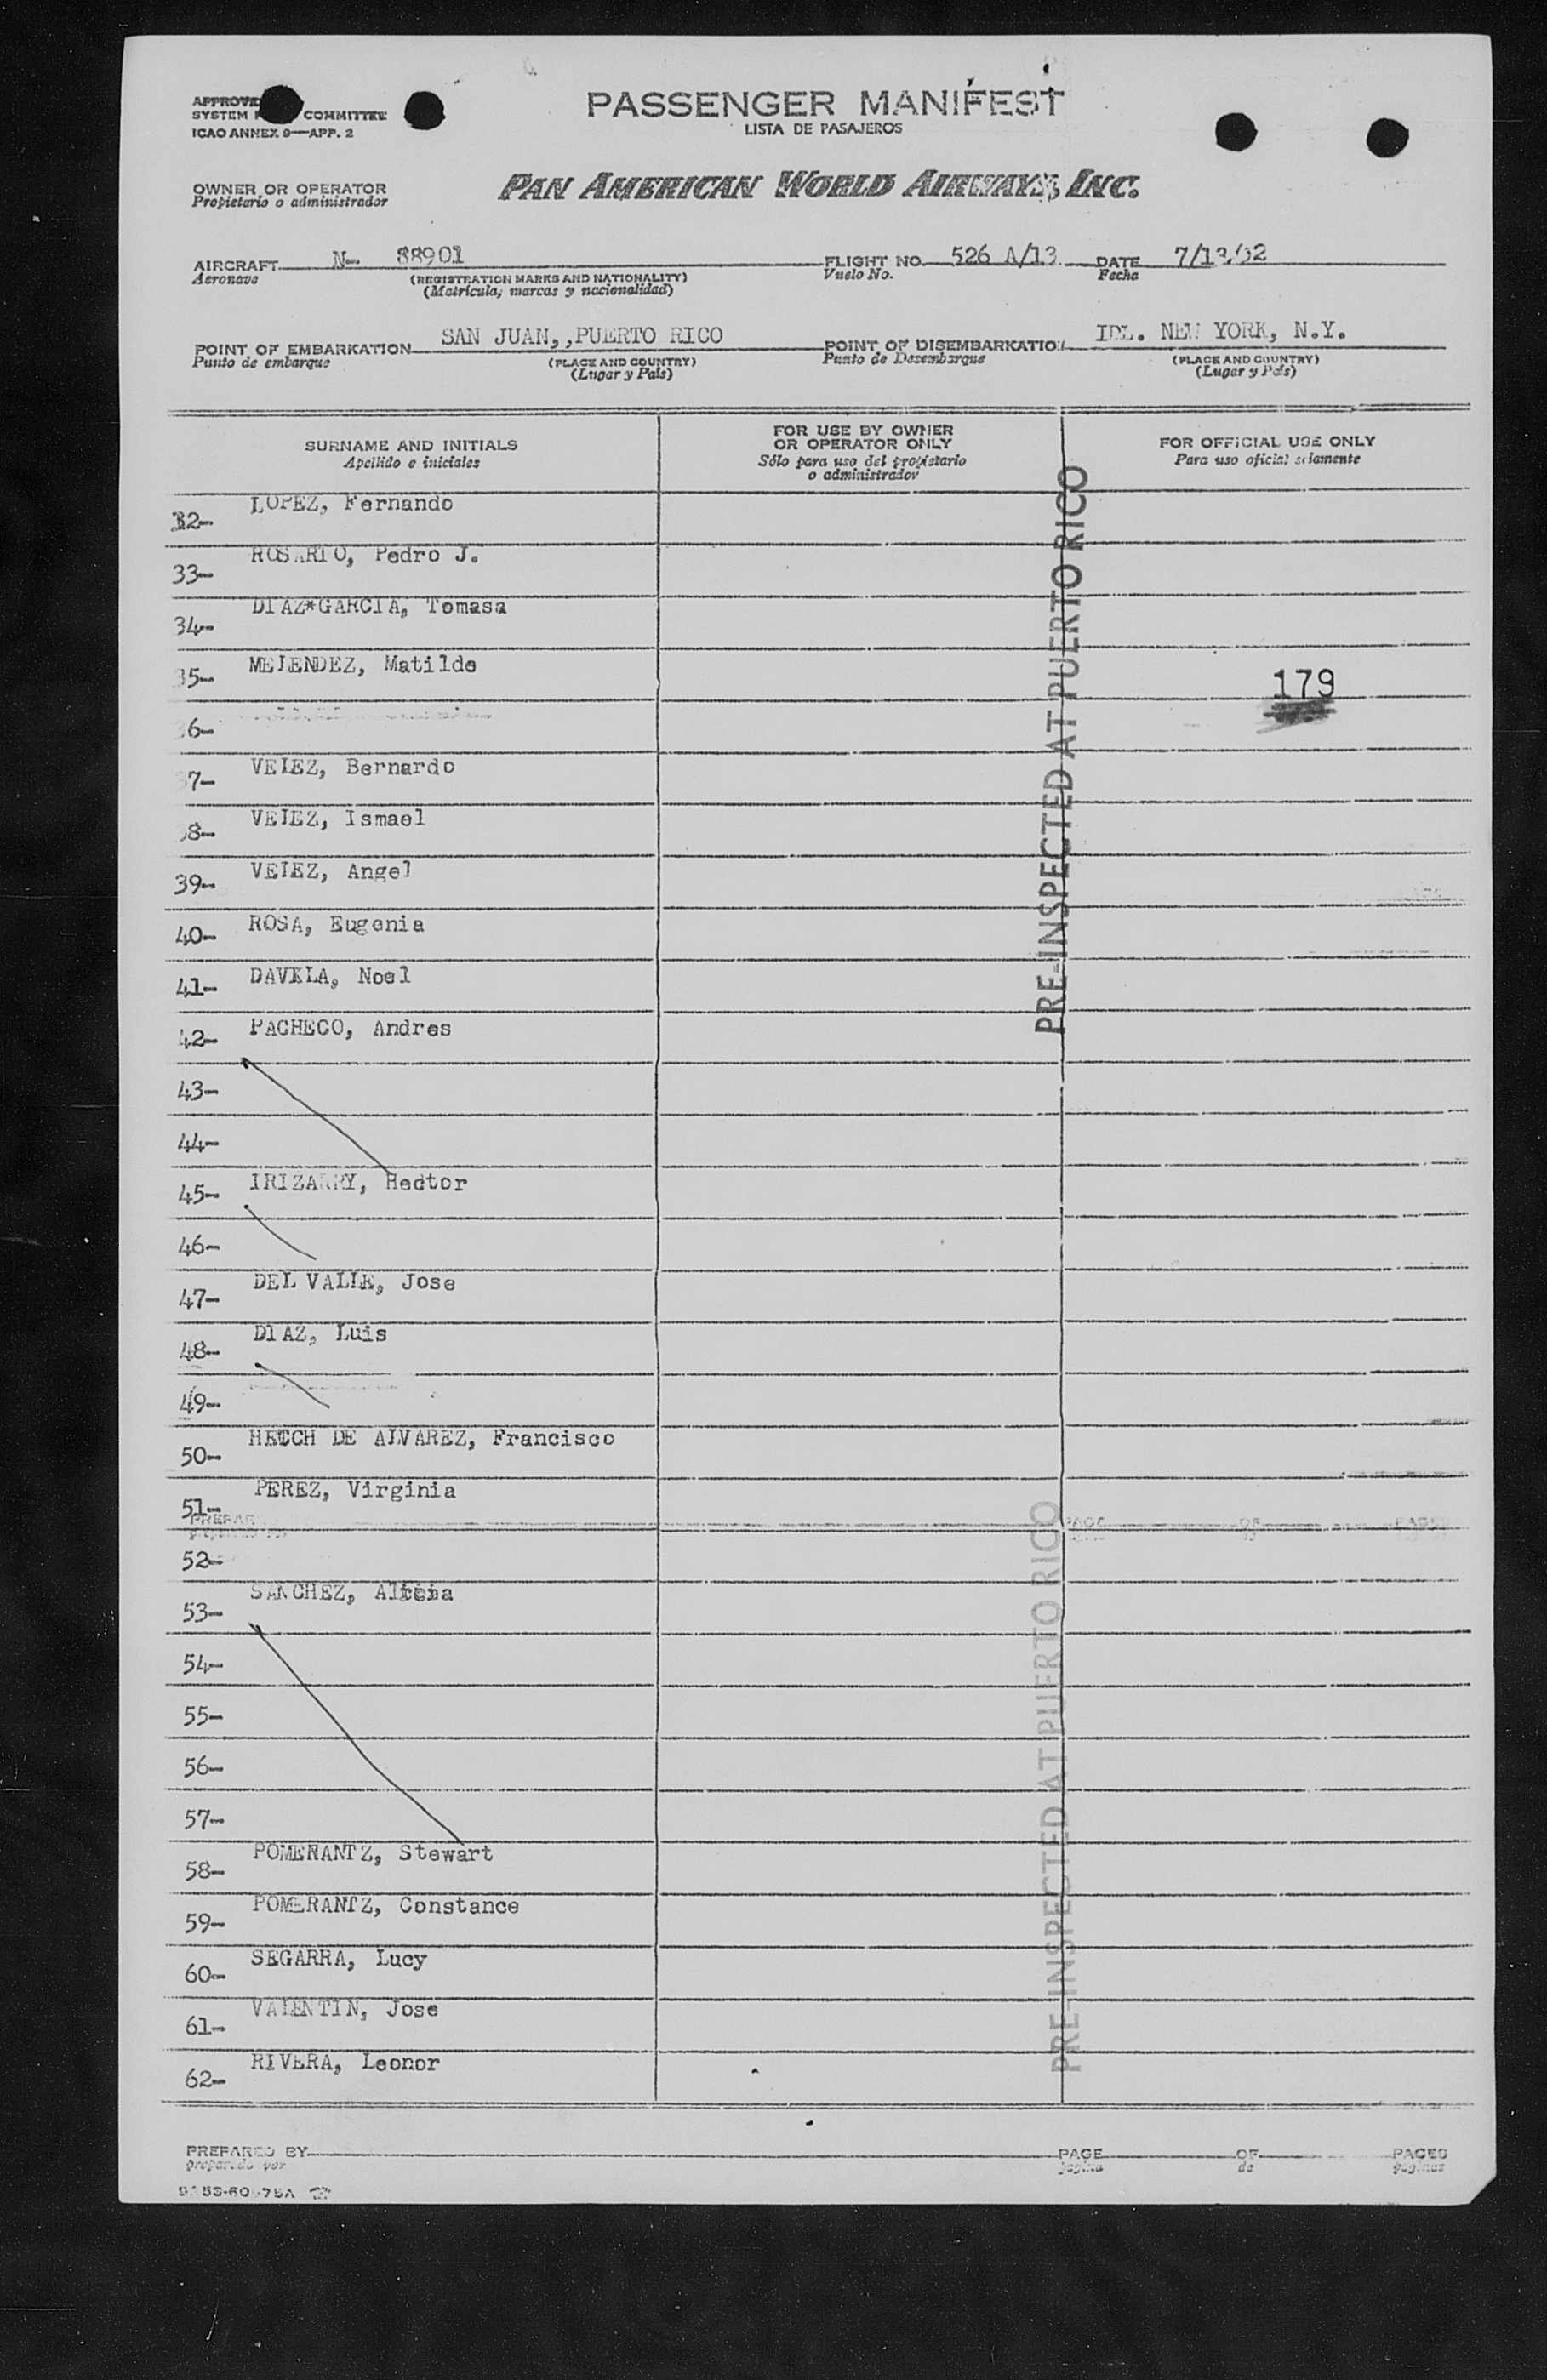 PASSENGER MANIFEST
LISTA DE PASAJEROS
SYSTEM COMMITTEE
ICAO ANNEX 9—APP. 2
OWNER OR OPERATOR
Propietario o administrador
PAN AMERICAN WORLD AIRWAYS, INC.
AIRCRAFT N- 88901 FLIGHT NO. 526 A/13 DATE 7/13/52
Aeronave (REGISTRATION MARKS AND NATIONALITY) Vuelo No. Fecha
(Matrícula, marcas y nacionalidad)
POINT OF EMBARKATION SAN JUAN,,PUERTO RICO POINT OF DISEMBARKATION IDL. NEW YORK, N.Y.
Punto de embarque (PLACE AND COUNTRY) Punto de Desembarque (PLACE AND COUNTRY)
(Lugar y País) (Lugar y País)
SURNAME AND INITIALS
Apellido e iniciales
FOR USE BY OWNER
OR OPERATOR ONLY
Sólo para uso del propietario
o administrador
FOR OFFICIAL USE ONLY
Para uso oficial solamente
32- LOPEZ, Fernando
33- ROSARIO, Pedro J.
34- DIAZ*GARCIA, Tomasa
35- MELENDEZ, Matilde
179
36-
37- VELEZ, Bernardo
38- VELEZ, Ismael
39- VELEZ, Angel
40- ROSA, Eugenia
41- DAVILA, Noel
42- PACHECO, Andres
43-
44-
45- IRIZARRY, Hector
46-
47- DEL VALLE, Jose
48- DIAZ, Luis
49-
50- DE ALVAREZ, Francisco
51- PEREZ, Virginia
52-
53- SANCHEZ, Alicia
54-
55-
56-
57-
58- POMERANTZ, Stewart
59- POMERANTZ, Constance
60- SEGARRA, Lucy
61- VALENTIN, Jose
62- RIVERA, Leonor
PRE-INSPECTED AT PUERTO RICO
PRE-INSPECTED AT PUERTO RICO
PREPARED BY PAGE OF PAGES
preparado por pagina de paginas